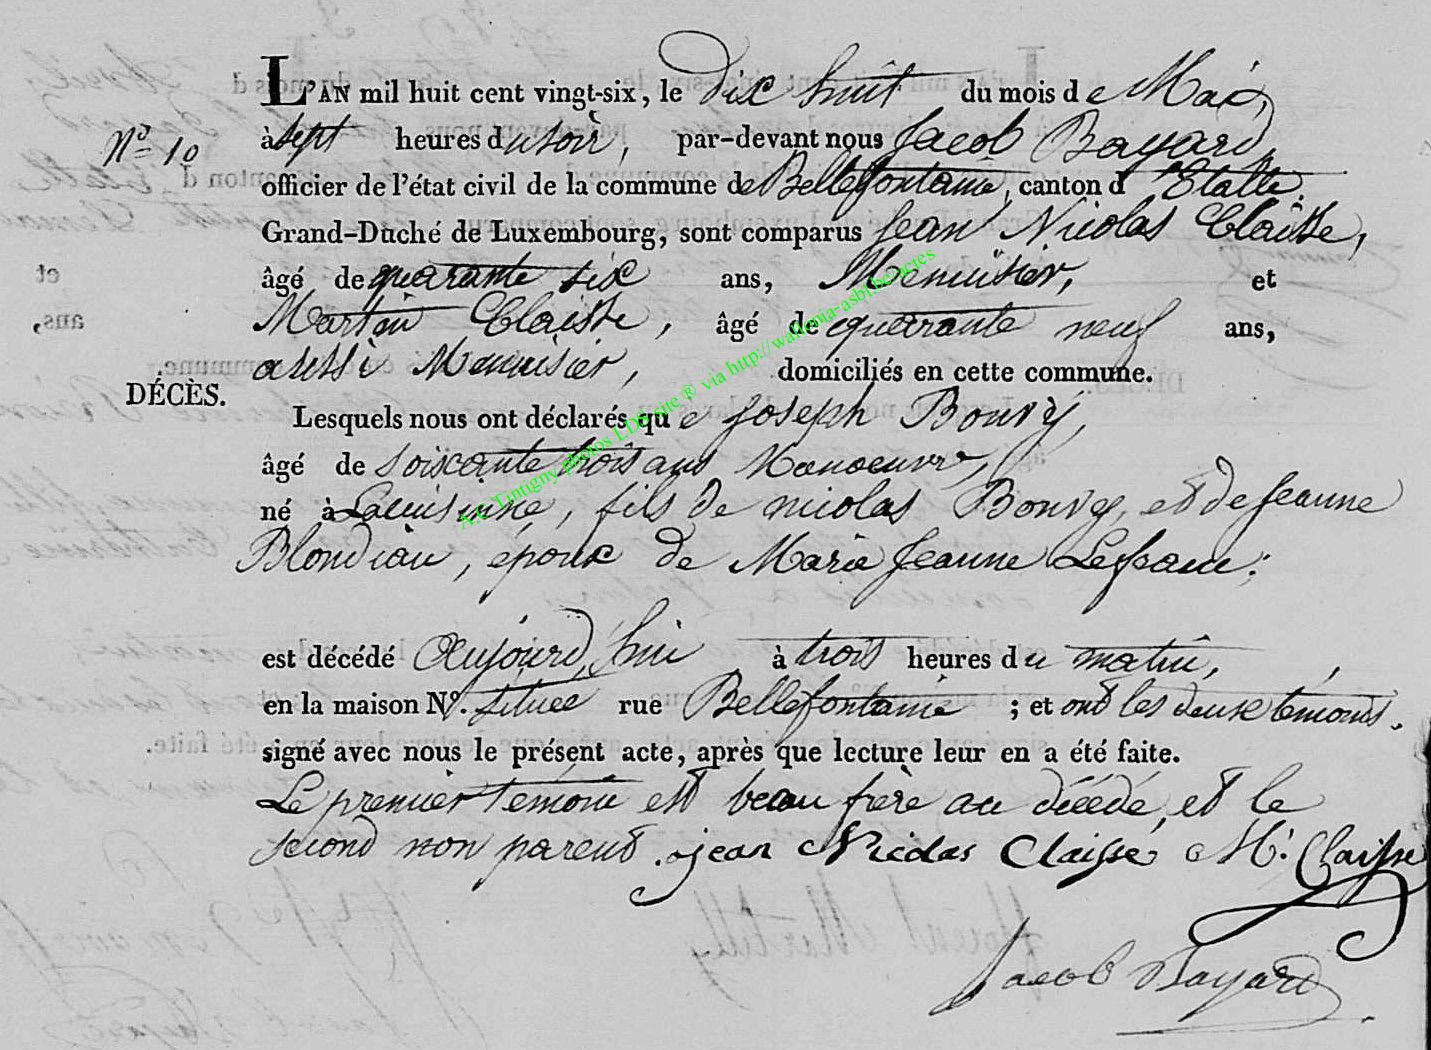 L'AN mil huit cent vingt-six, le dix huit du mois de Mai,
N.º 10
à sept heures du soir, par-devant nous Jacob Bayard
officier de l'état civil de la commune de Bellefontaine, canton d'Etalle.
Grand-Duché de Luxembourg, sont comparus Jean Nicolas Claisse,
âgé de quarante six ans, Menuisier, et
Martin Claisse, âgé de quarante neuf ans,
aussi Menuisier, domiciliés en cette commune.
DÉCÈS.
Lesquels nous ont déclarés que Joseph Bouvy,
âgé de soixante trois ans Manoeuvre,
né à Lacuisine, fils de nicolas Bouvy, et de Jeanne
Blondiau, époux de Marie Jeanne Lefranc;
est décédé Aujourd'hui à trois heures du matin,
en la maison Nº. située rue Bellefontaine ; et ont les deux témoins.
signé avec nous le présent acte, après que lecture leur en a été faite.
Le premier témoin est beau frère au décédé, et le
second non parent. jean Nicolas Claisse M. Claisse
Jacob Bayard
A.E. Tintigny photos LDS site ® via http://wallonia-asbl.be/actes